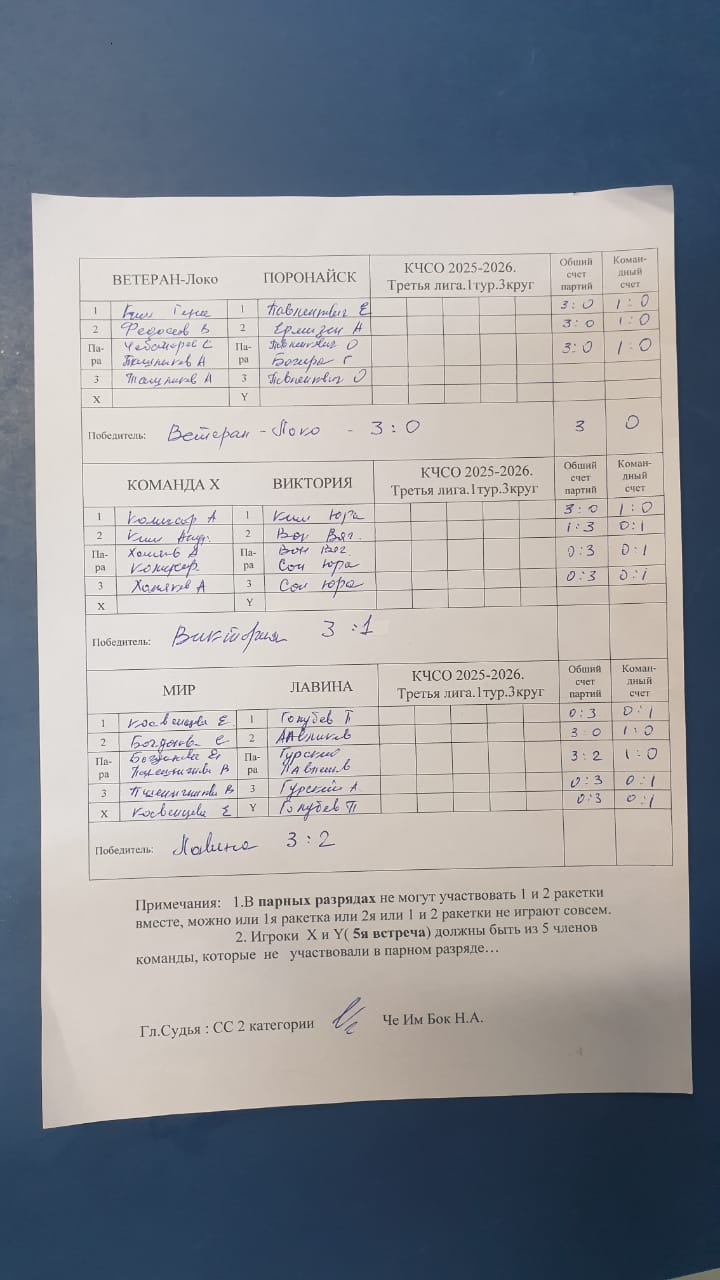 ВЕТЕРАН-Локо ПОРОНАЙСК КЧСО 2025-2026. Третья лига.1тур.3круг Общий счет партий Коман-дный счет
1 Ким Гена 1 Е 3:0 1:0
2 Федосов В 2 А 3:0 1:0
Па-ра С Па-ра О 3:0 1:0
А Г
3 А 3 О
X Y
Победитель: Ветеран-Локо - 3:0 3 0
КОМАНДА Х ВИКТОРИЯ КЧСО 2025-2026. Третья лига.1тур.3круг Общий счет партий Коман-дный счет
1 А 1 Ким Юра 3:0 1:0
2 Ким 2 Вон Вяч. 1:3 0:1
Па-ра Па-ра Вон Вяч. 0:3 0:1
Сон Юра
3 А 3 Сон Юра 0:3 0:1
X Y
Победитель: Виктория 3:1
МИР ЛАВИНА КЧСО 2025-2026. Третья лига.1тур.3круг Общий счет партий Коман-дный счет
1 Е 1 Голубев П 0:3 0:1
2 Богданова Е 2 3:0 1:0
Па-ра Богданова Е Па-ра Гурский 3:2 1:0
В
3 В 3 Гурский А 0:3 0:1
X Е Y Голубев П 0:3 0:1
Победитель: Лавина 3:2
Примечания: 1.В парных разрядах не могут участвовать 1 и 2 ракетки
вместе, можно или 1я ракетка или 2я или 1 и 2 ракетки не играют совсем.
2. Игроки X и Y( 5я встреча) должны быть из 5 членов
команды, которые не участвовали в парном разряде…
Гл.Судья : СС 2 категории Че Им Бок Н.А.